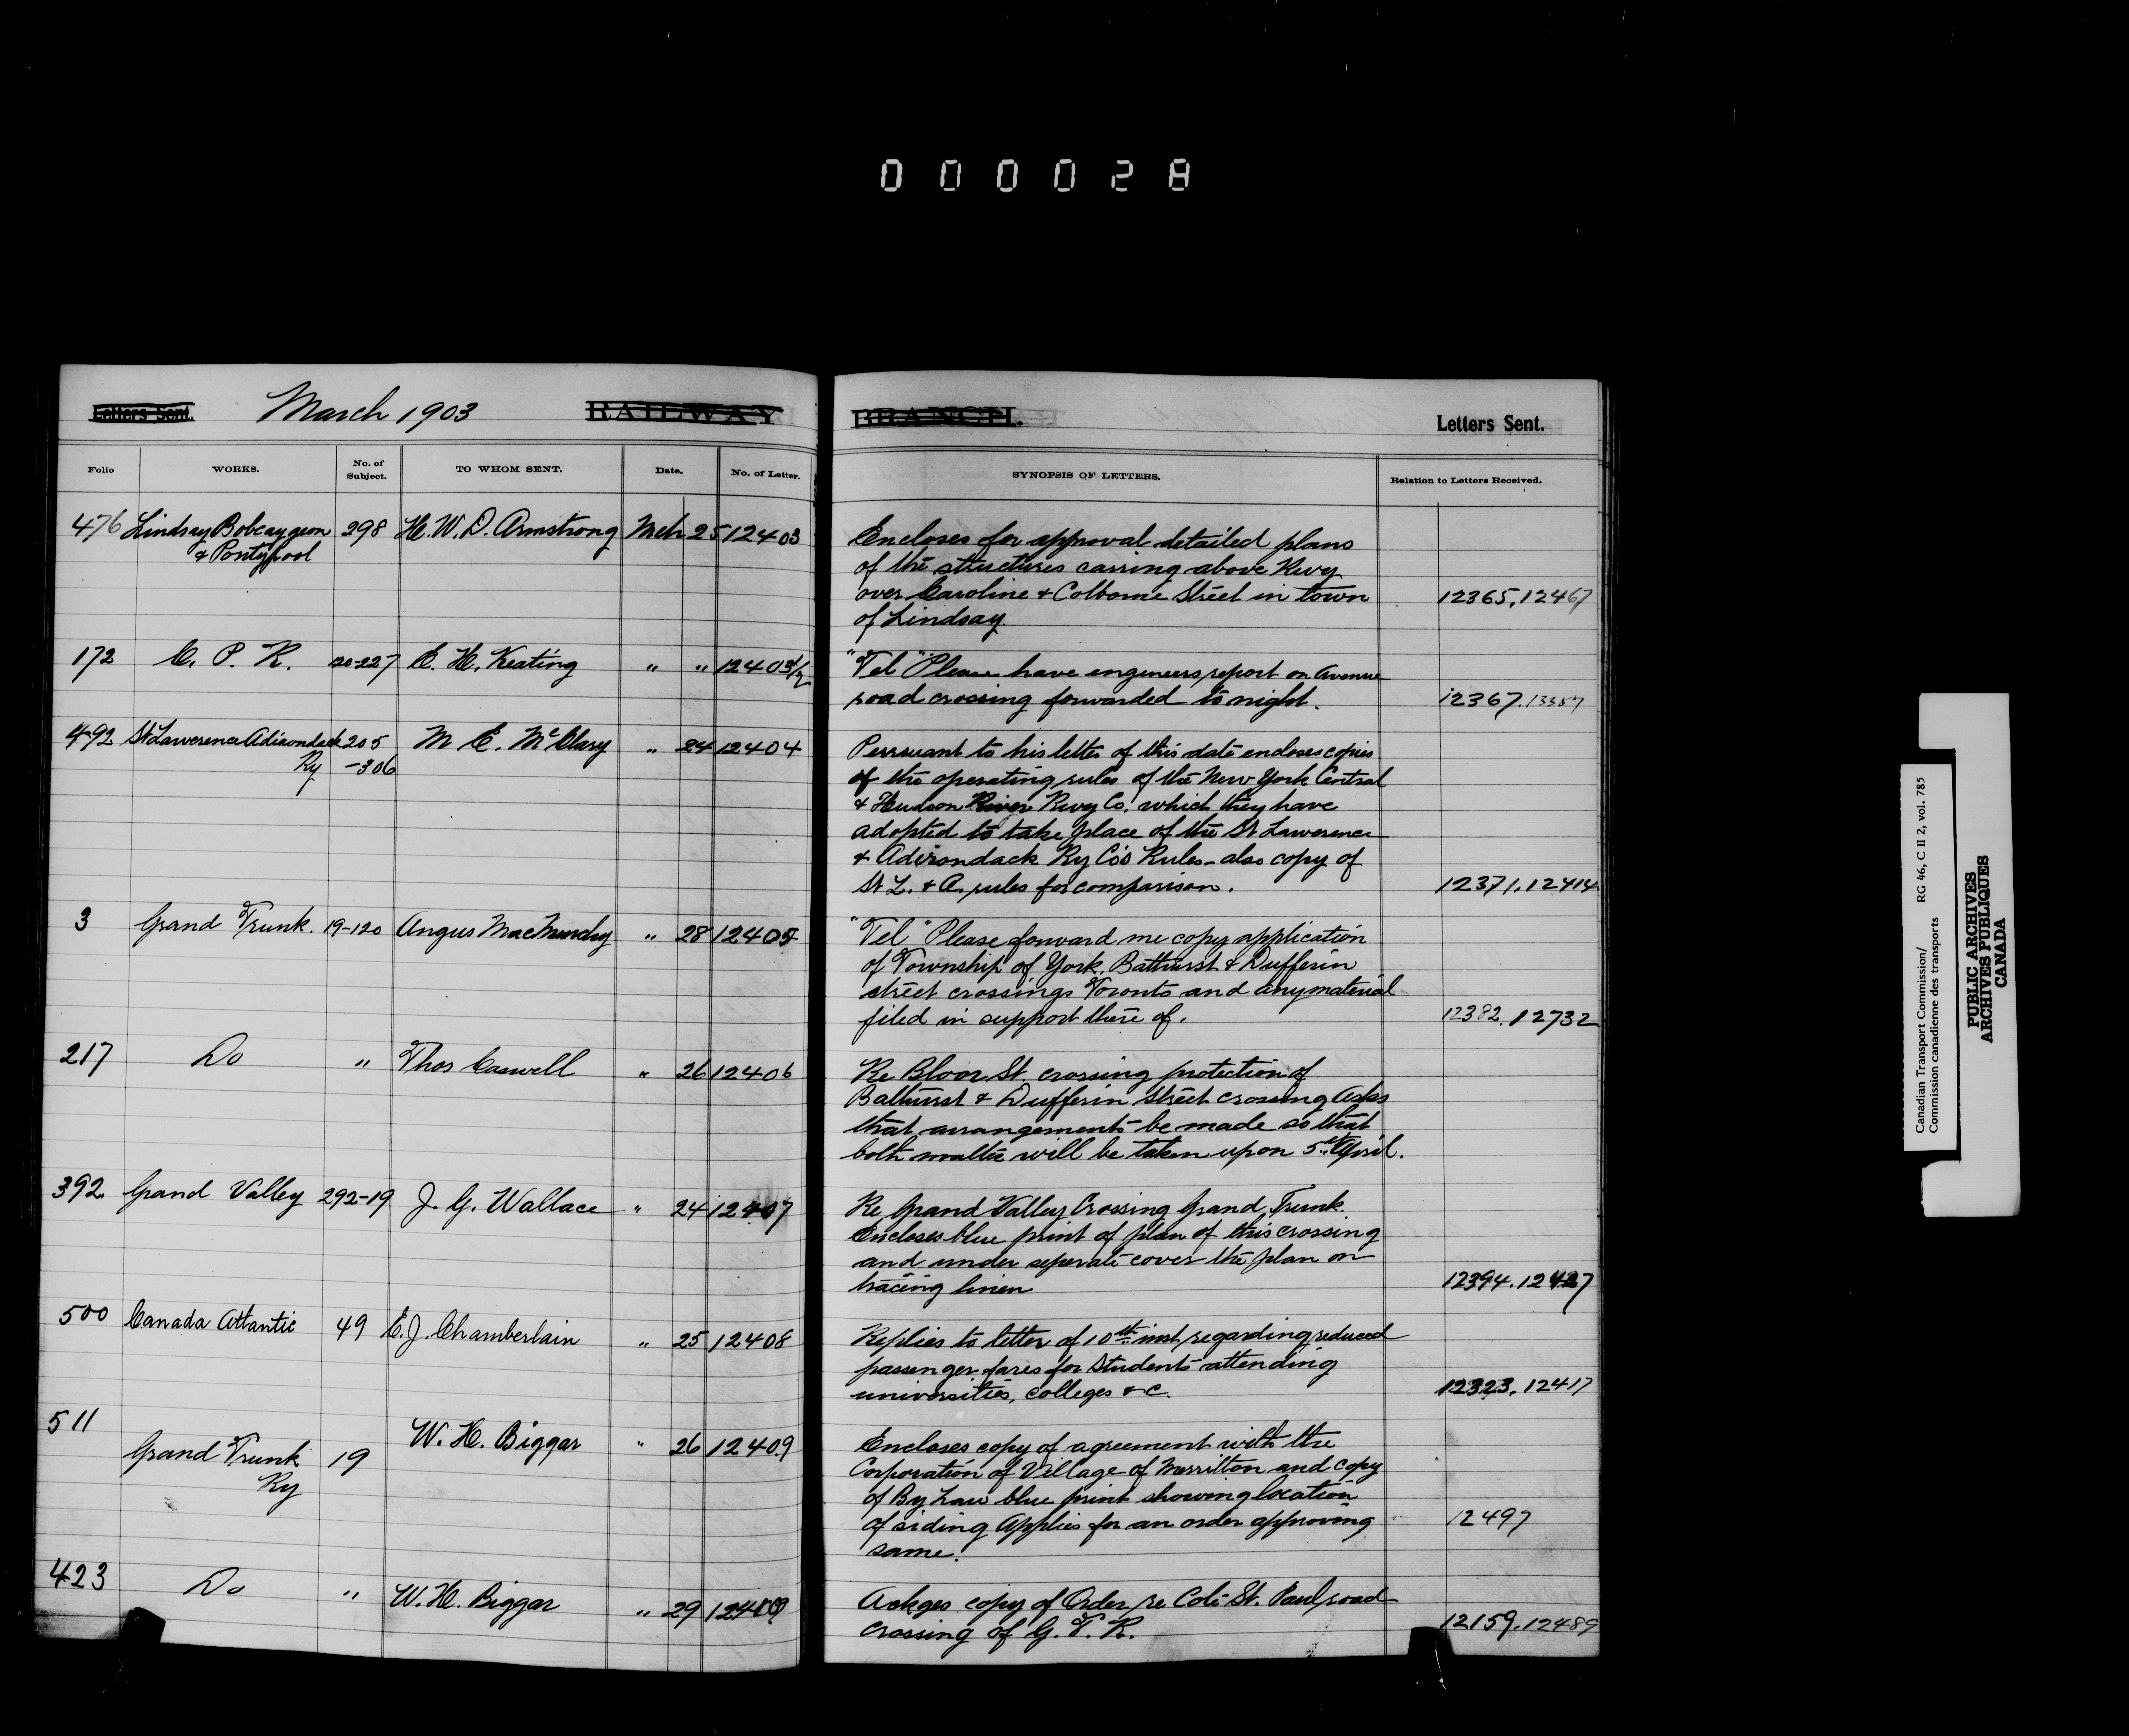 0 0 0 0 2 8
Letters Sent.
March 1903
RAILWAY
BRANCH.
Letters Sent.
Folio
WORKS.
No. of Subject.
TO WHOM SENT.
Date.
No. of Letter.
SYNOPSIS OF LETTERS.
Relation to Letters Received.
476 Lindsay Bobcaygeon 298 H. W. D. Armstrong Mch 25 12403
& Pontypool
Encloses for approval detailed plans
of the structures carring above Rwy
over Caroline & Colborne Street in town 12365, 12467
of Lindsay
172 C. P. R. 20-227 E. H. Keating " " 12403 1/2
"Tel" Please have engineers report on Avenue
road crossing forwarded to night. 12367. 13357
492 St Lawerence Adirondack 205 M C. McClary " 24 12404
Ry -306
Persuant to his letter of this date encloses copies
of the operating rules of the New York Central
& Hudson River Rwy Co. which they have
adopted to take place of the St Lawerence
& Adirondack Ry Co's Rules - also copy of
St L. & A. rules for comparison. 12371. 12414
3 Grand Trunk. 19-120 Angus MacMurchy " 28 12405
"Tel" Please forward me copy application
of Township of York. Bathurst & Dufferin
street crossings Toronto and any material
filed in support there of. 12382. 12732
217 Do " Thos Caswell " 26 12406
Re Bloor St. crossing protection of
Bathurst & Dufferin Street crossing Asks
that arrangements be made so that
both matter will be taken upon 5th April.
392. Grand Valley 292-19 J. G. Wallace " 24 12407
Re Grand Valley Crossing Grand Trunk.
Encloses blue print of plan of this crossing
and under seperate cover the plan on
tracing linen 12394. 12427
500 Canada Atlantic 49 E. J. Chamberlain " 25 12408
Replies to letter of 10th inst regarding reduced
passenger fares for Students attending
universities, colleges &c. 12323. 12417
511
Grand Trunk 19 W. H. Biggar " 26 12409
Ry
Encloses copy of agreement with the
Corporation of Village of Merritton and copy
of By Law blue print showing location
of siding Applies for an order approving 12497
same.
423 Do " W. H. Biggar " 29 12410
Ackges copy of Order re Cote St. Paul road
crossing of G. T. R. 12159. 12489
Canadian Transport Commission/
Commission canadienne des transports
RG 46, C II 2, vol. 785
PUBLIC ARCHIVES
ARCHIVES PUBLIQUES
CANADA